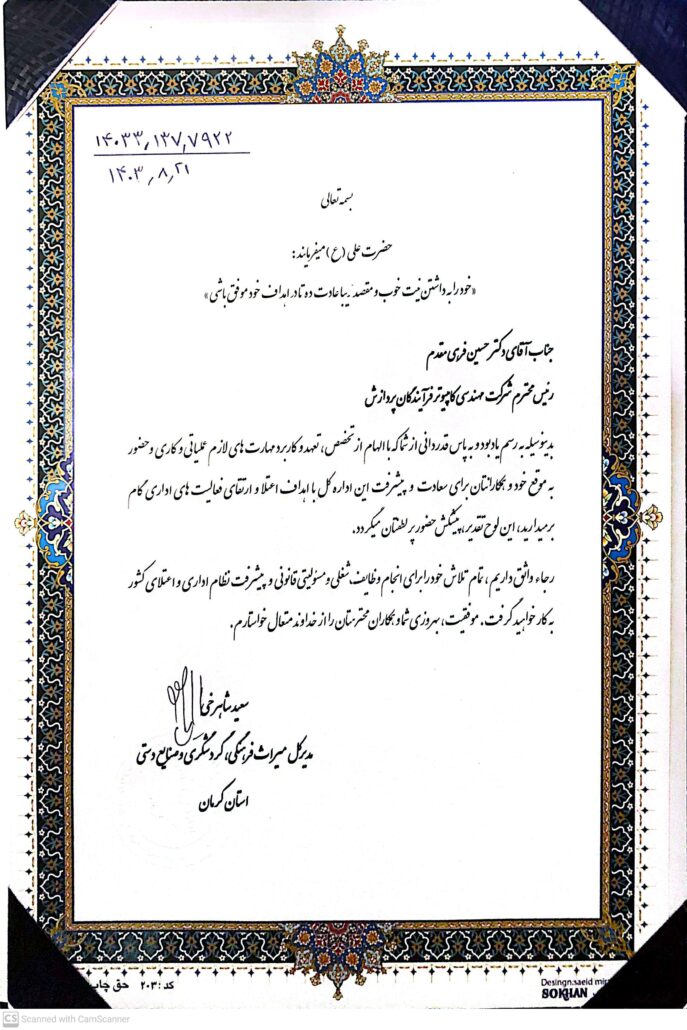 ۱۴۰۳۳,۱۳۷,۷۹۲۲
۱۴۰۳,۸,۲۱
بسمه تعالی
حضرت علی (ع) میفرمایند:
«خود را به داشتن نیت خوب و مقصد زیبا عادت ده تا در اهداف خود موفق باشی»
جناب آقای دکتر حسین فرهی مقدم
رئیس محترم شرکت مهندسی کامپیوتر فرآیندگان پردازش
بدینوسیله به رسم یادبود و به پاس قدردانی از شما که با الهام از تخصص، تعهد و کاربرد مهارت های لازم عملیاتی و کاری و حضور
به موقع خود و همکارانتان برای سعادت و پیشرفت این اداره کل با اهداف اعتلا و ارتقای فعالیت های اداری گام
برمیدارید، این لوح تقدیر، پیشکش حضور پر لطفتان میگردد.
رجاء واثق داریم، تمام تلاش خود را برای انجام وظایف شغلی و مسئولیتی قانونی و پیشرفت نظام اداری و اعتلای کشور
به کار خواهید گرفت. موفقیت، بهروزی شما و همکاران محترمتان را از خداوند متعال خواستارم.
سعید شاهرخی
مدیر کل میراث فرهنگی، گردشگری و صنایع دستی
استان کرمان
کد: ۲۰۳ حق چاپ
Desingn:saeid
SOKHAN
CS Scanned with CamScanner